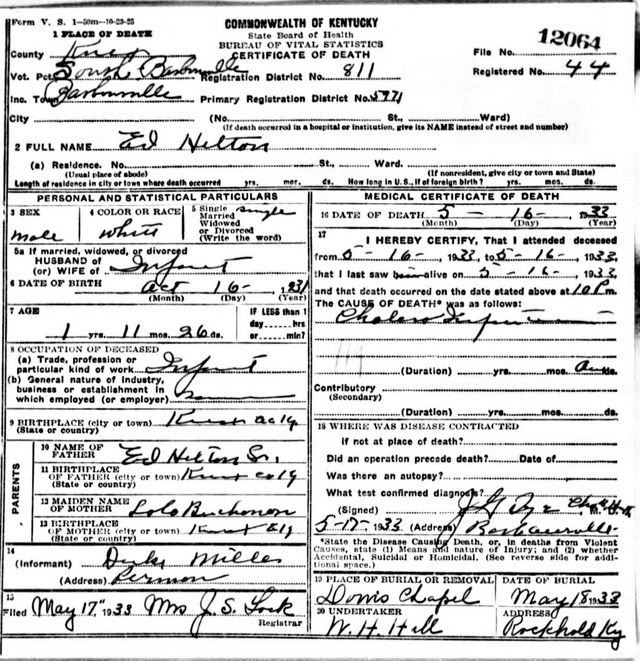 Form V. S. 1—50m—10-23-25
1 PLACE OF DEATH
COMMONWEALTH OF KENTUCKY
State Board of Health
BUREAU OF VITAL STATISTICS
CERTIFICATE OF DEATH
File No. 12064
Registered No. 44
County Knox
Vot. Pct. South Barbourville Registration District No. 811
Inc. Town Barbourville Primary Registration District No. 5971
City (No. St., Ward)
(If death occurred in a hospital or institution, give its NAME instead of street and number)
2 FULL NAME Ed Helton
(a) Residence. No. St., Ward.
(Usual place of abode) (If nonresident, give city or town and State)
Length of residence in city or town where death occurred yrs. mos. ds. How long in U.S., if of foreign birth? yrs. mos. ds.
PERSONAL AND STATISTICAL PARTICULARS
3 SEX
Male
4 COLOR OR RACE
White
5 Single single
Married
Widowed
or Divorced
(Write the word)
5a If married, widowed, or divorced
HUSBAND OF
(or) WIFE of Infant
6 DATE OF BIRTH Oct 16- 1931
(Month) (Day) (Year)
7 AGE
1 yrs. 11 mos. 26 ds.
IF LESS than 1
day hrs
or min?
8 OCCUPATION OF DECEASED
(a) Trade, profession or
particular kind of work Infant
(b) General nature of industry,
business or establishment in
which employed (or employer)
9 BIRTHPLACE (city or town)
(State or country)
PARENTS
10 NAME OF
FATHER Ed Helton Sr.
11 BIRTHPLACE
OF FATHER (city or town) Knox co Ky
(State or country)
12 MAIDEN NAME
OF MOTHER Lola Buchanon
13 BIRTHPLACE
OF MOTHER (city or town)
(State or country)
14
(Informant) Miller
(Address)
15
Filed May 17" 1933 Mrs J. S. Lock
Registrar
MEDICAL CERTIFICATE OF DEATH
16 DATE OF DEATH 5 - 16 - 1933
(Month) (Day)
17
I HEREBY CERTIFY, That I attended deceased
from 5-16-, 1933, to 5-16-, 1933,
that I last saw alive on 5-16-, 1933
and that death occurred on the date stated above at 10 P m.
The CAUSE OF DEATH* was as follows:
Cholera Infantum
(Duration) yrs. mos. ds.
Contributory
(Secondary)
(Duration) yrs. mos. ds.
18 WHERE WAS DISEASE CONTRACTED
if not at place of death?
Did an operation precede death? Date of
Was there an autopsy?
What test confirmed diagnosis?
(Signed)
5-17-1933 (Address) Barbourville
*State the Disease Causing Death, or, in deaths from Violent
Causes, state (1) Means and nature of Injury; and (2) whether
Accidental, Suicidal or Homicidal. (See reverse side for addi-
tional space.)
19 PLACE OF BURIAL OR REMOVAL
Chapel
DATE OF BURIAL
May 18 1933
20 UNDERTAKER
W. H. Hall
ADDRESS
Rockhold Ky